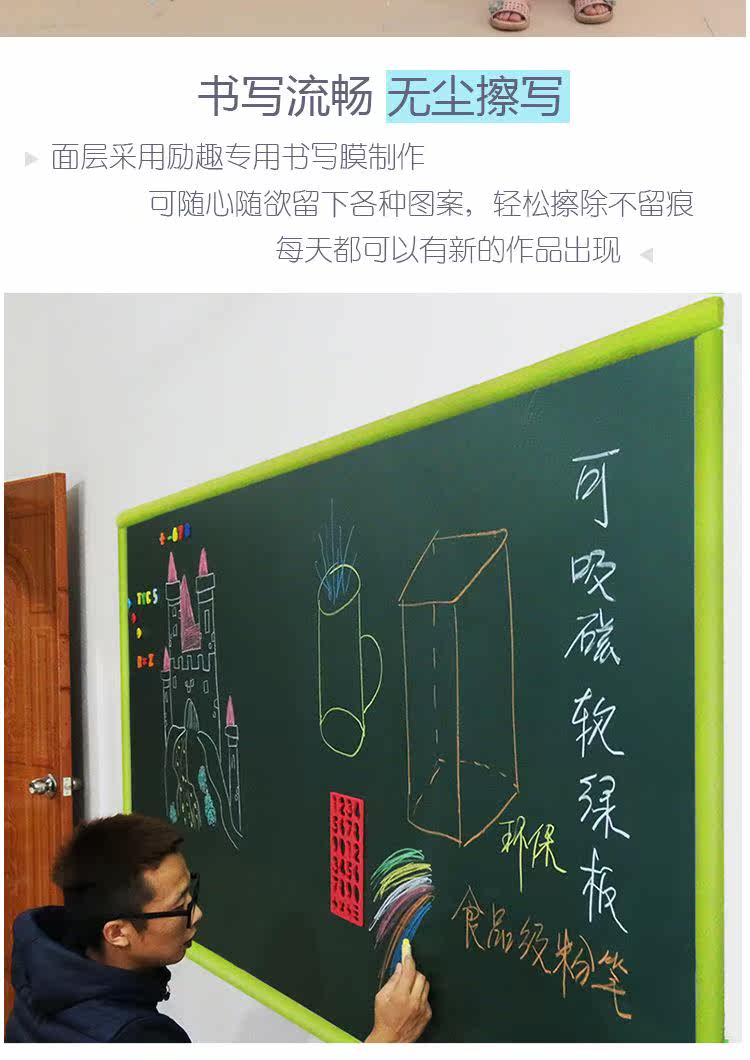 书写流畅 无尘擦写
面层采用励趣专用书写膜制作
可随心随欲留下各种图案，轻松擦除不留痕
每天都可以有新的作品出现
可吸磁软绿板
环保
食品级粉笔